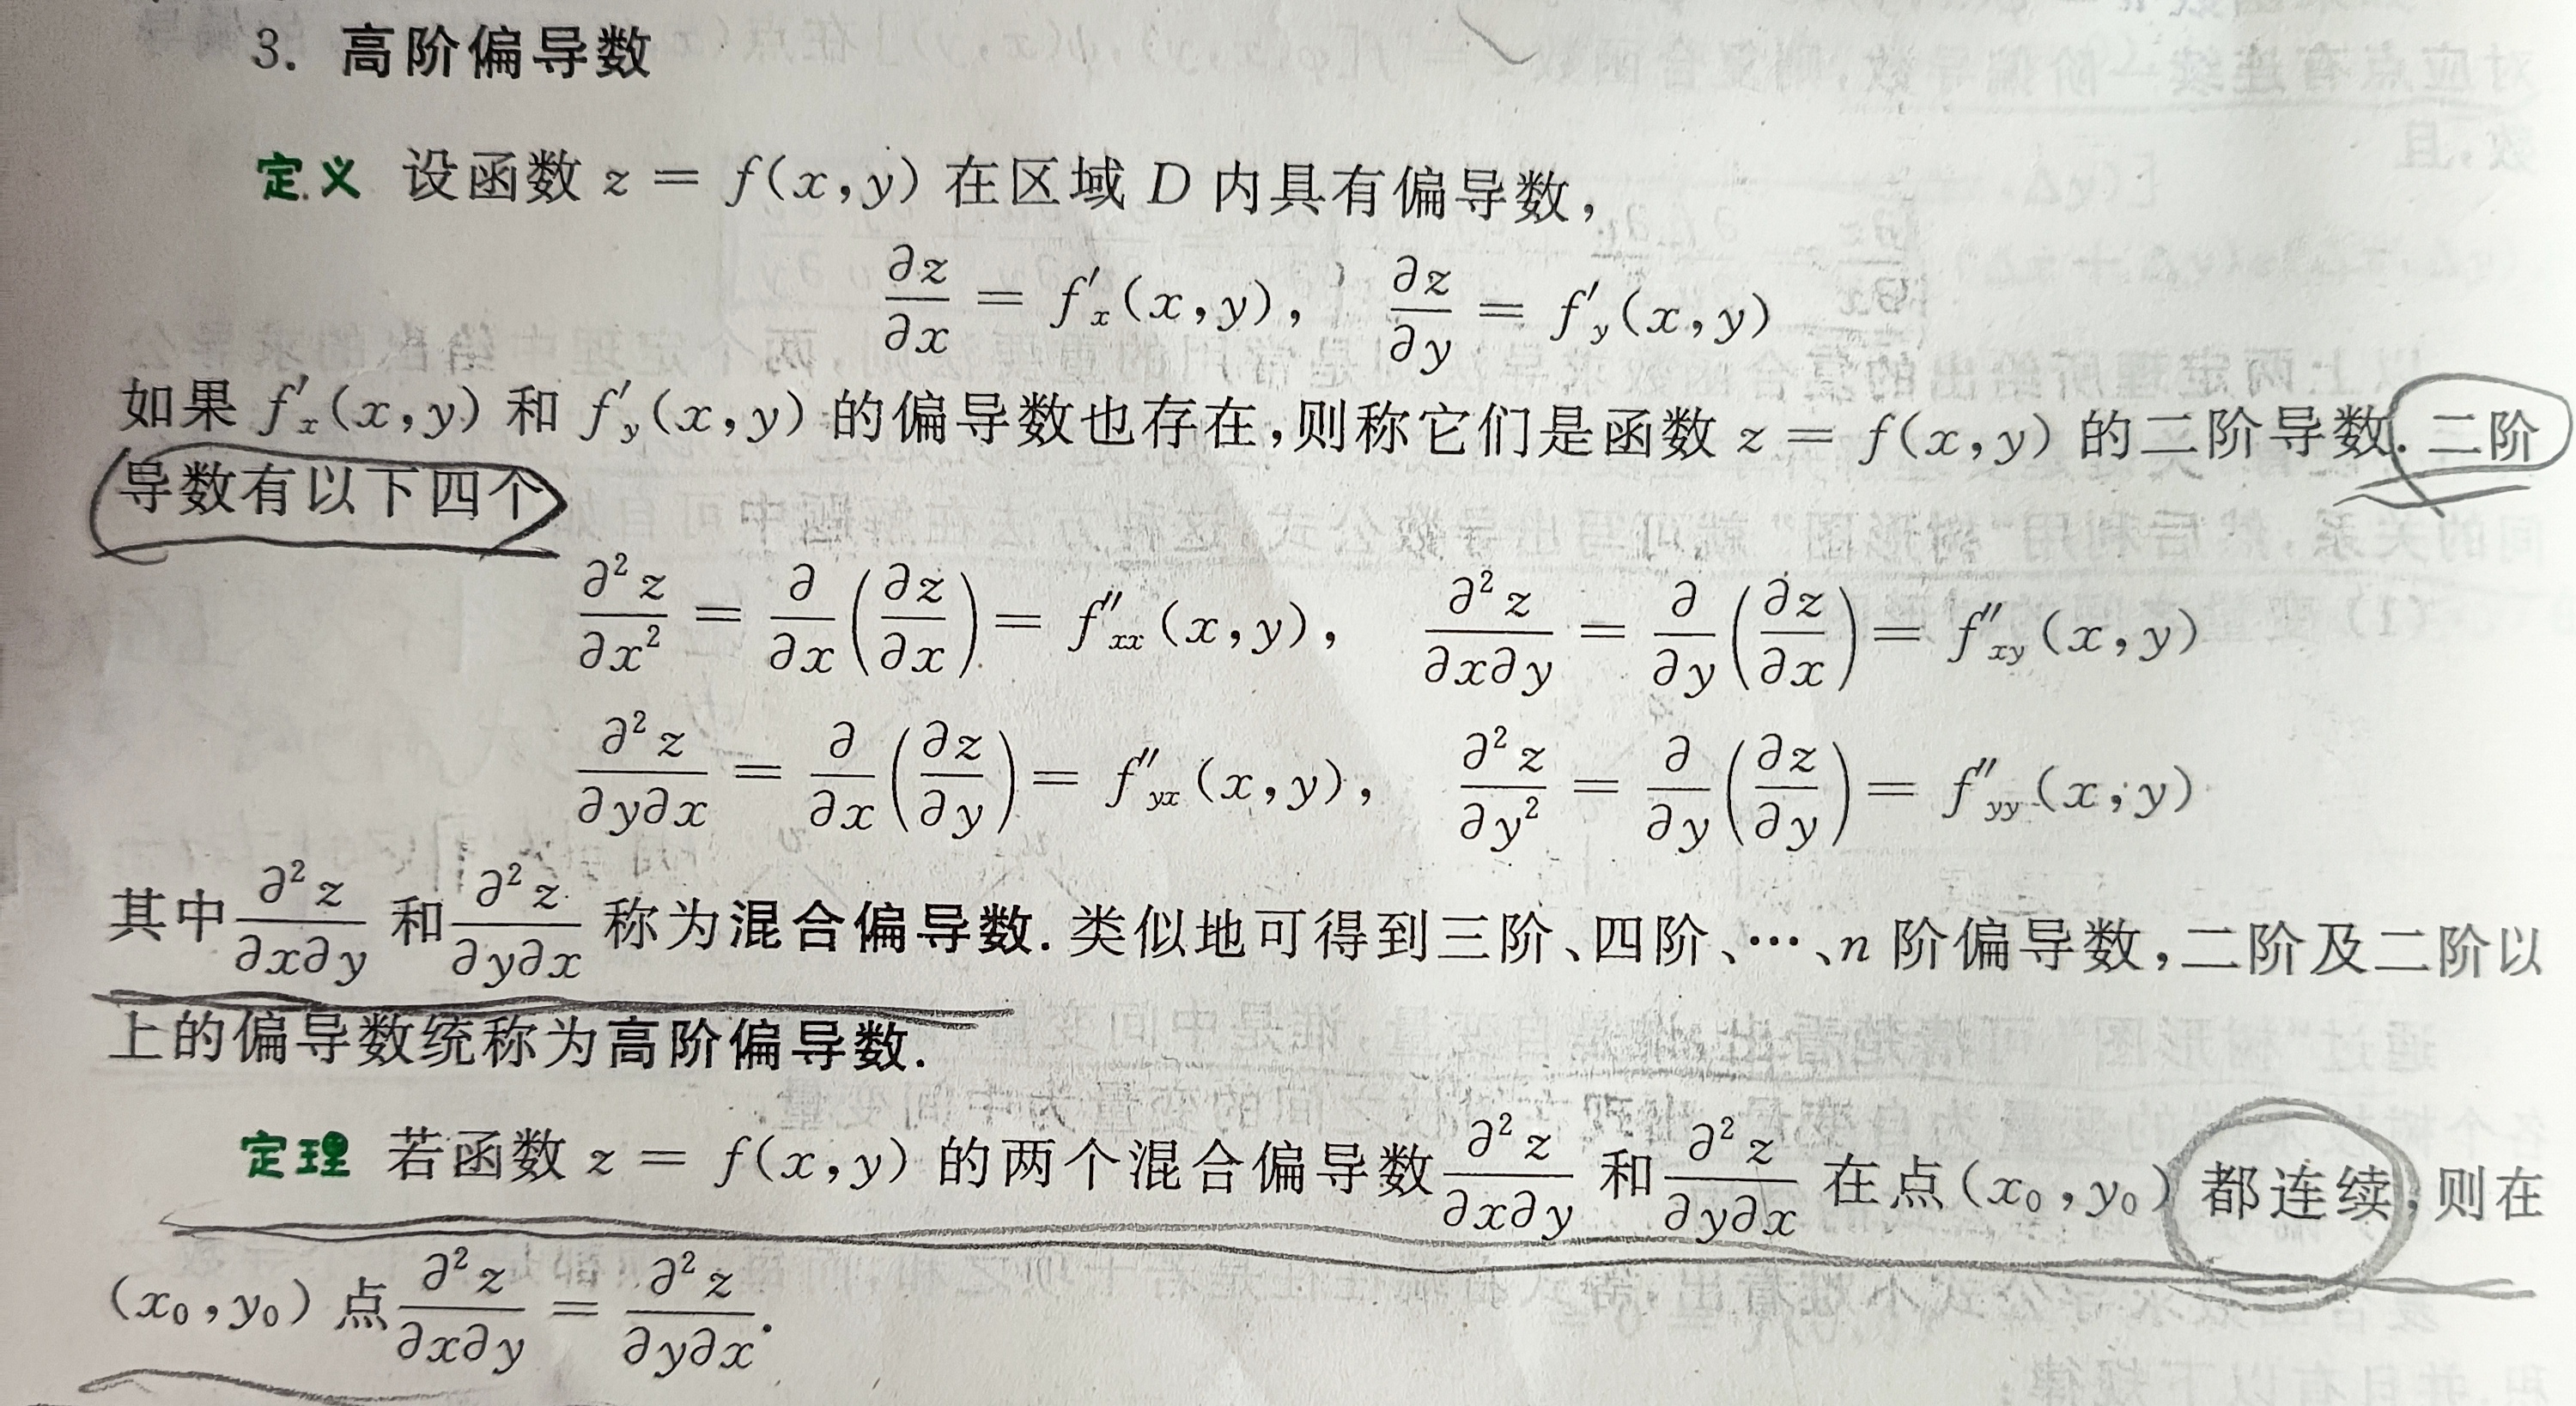 3. 高阶偏导数
定义 设函数 z = f(x,y) 在区域 D 内具有偏导数,
∂z/∂x = f′ₓ(x,y), ∂z/∂y = f′_y(x,y)
如果 f′ₓ(x,y) 和 f′_y(x,y) 的偏导数也存在,则称它们是函数 z = f(x,y) 的二阶导数.二阶
导数有以下四个
∂²z/∂x² = ∂/∂x(∂z/∂x) = f″_xx(x,y), ∂²z/∂x∂y = ∂/∂y(∂z/∂x) = f″_xy(x,y)
∂²z/∂y∂x = ∂/∂x(∂z/∂y) = f″_yx(x,y), ∂²z/∂y² = ∂/∂y(∂z/∂y) = f″_yy(x,y)
其中 ∂²z/∂x∂y 和 ∂²z/∂y∂x 称为混合偏导数.类似地可得到三阶、四阶、…、n 阶偏导数,二阶及二阶以
上的偏导数统称为高阶偏导数.
定理 若函数 z = f(x,y) 的两个混合偏导数 ∂²z/∂x∂y 和 ∂²z/∂y∂x 在点(x₀,y₀) 都连续,则在
(x₀,y₀) 点 ∂²z/∂x∂y = ∂²z/∂y∂x.